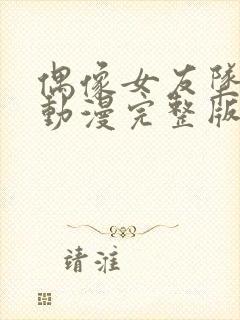 偶像女友墜
動漫完整版
靖淮